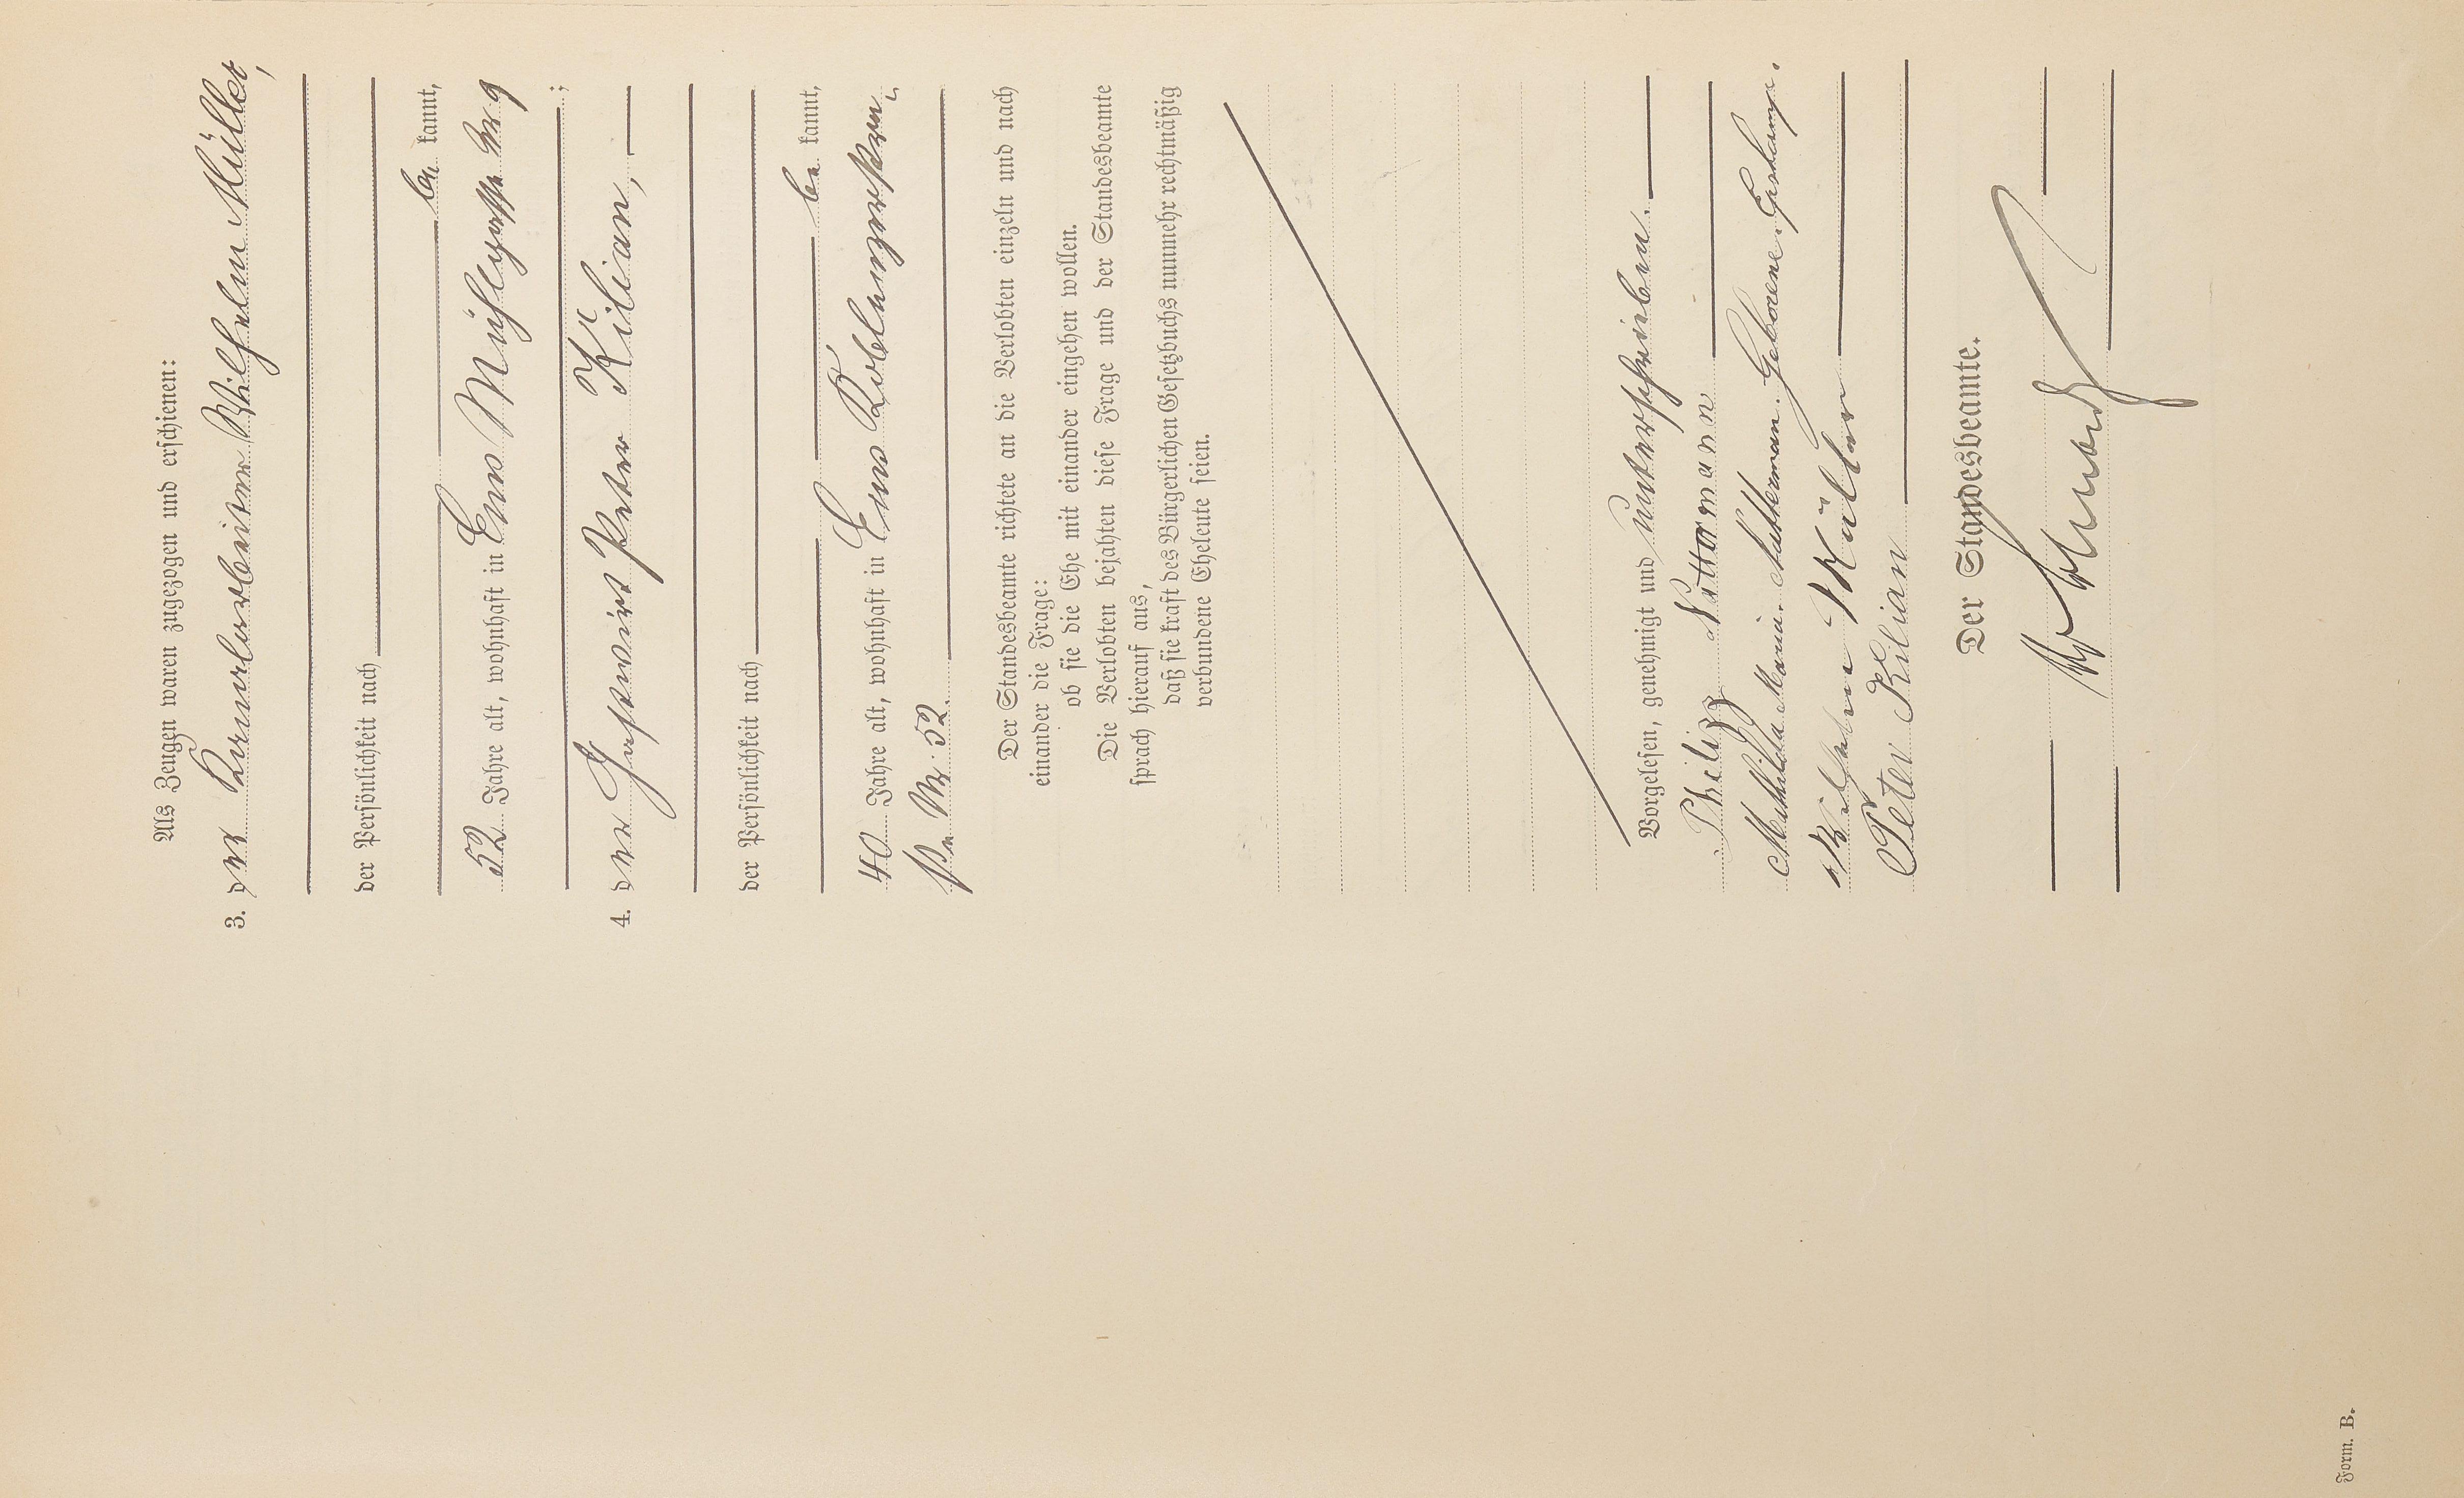 Als Zeugen waren zugezogen und erschienen:
3. der Wilhelm Müller,
der Persönlichkeit nach
be kannt,
52 Jahre alt, wohnhaft in Ems Mühlgasse Nr 9
;
4. der Gastwirt Peter Kilian,
der Persönlichkeit nach
be kannt,
40 Jahre alt, wohnhaft in Ems Koblenzerstra-
ße Nr. 52.
Der Standesbeamte richtete an die Verlobten einzeln und nach
einander die Frage:
ob sie die Ehe mit einander eingehen wollen.
Die Verlobten bejahten diese Frage und der Standesbeamte
sprach hierauf aus,
daß sie kraft des Bürgerlichen Gesetzbuchs nunmehr rechtmäßig
verbundene Eheleute seien.
Vorgelesen, genehmigt und unterschrieben.
Philipp Nattermann
Mathilda Maria Natterman. Geborene
Wilhelm Müller
Peter Kilian
Der Standesbeamte.
Form. B.